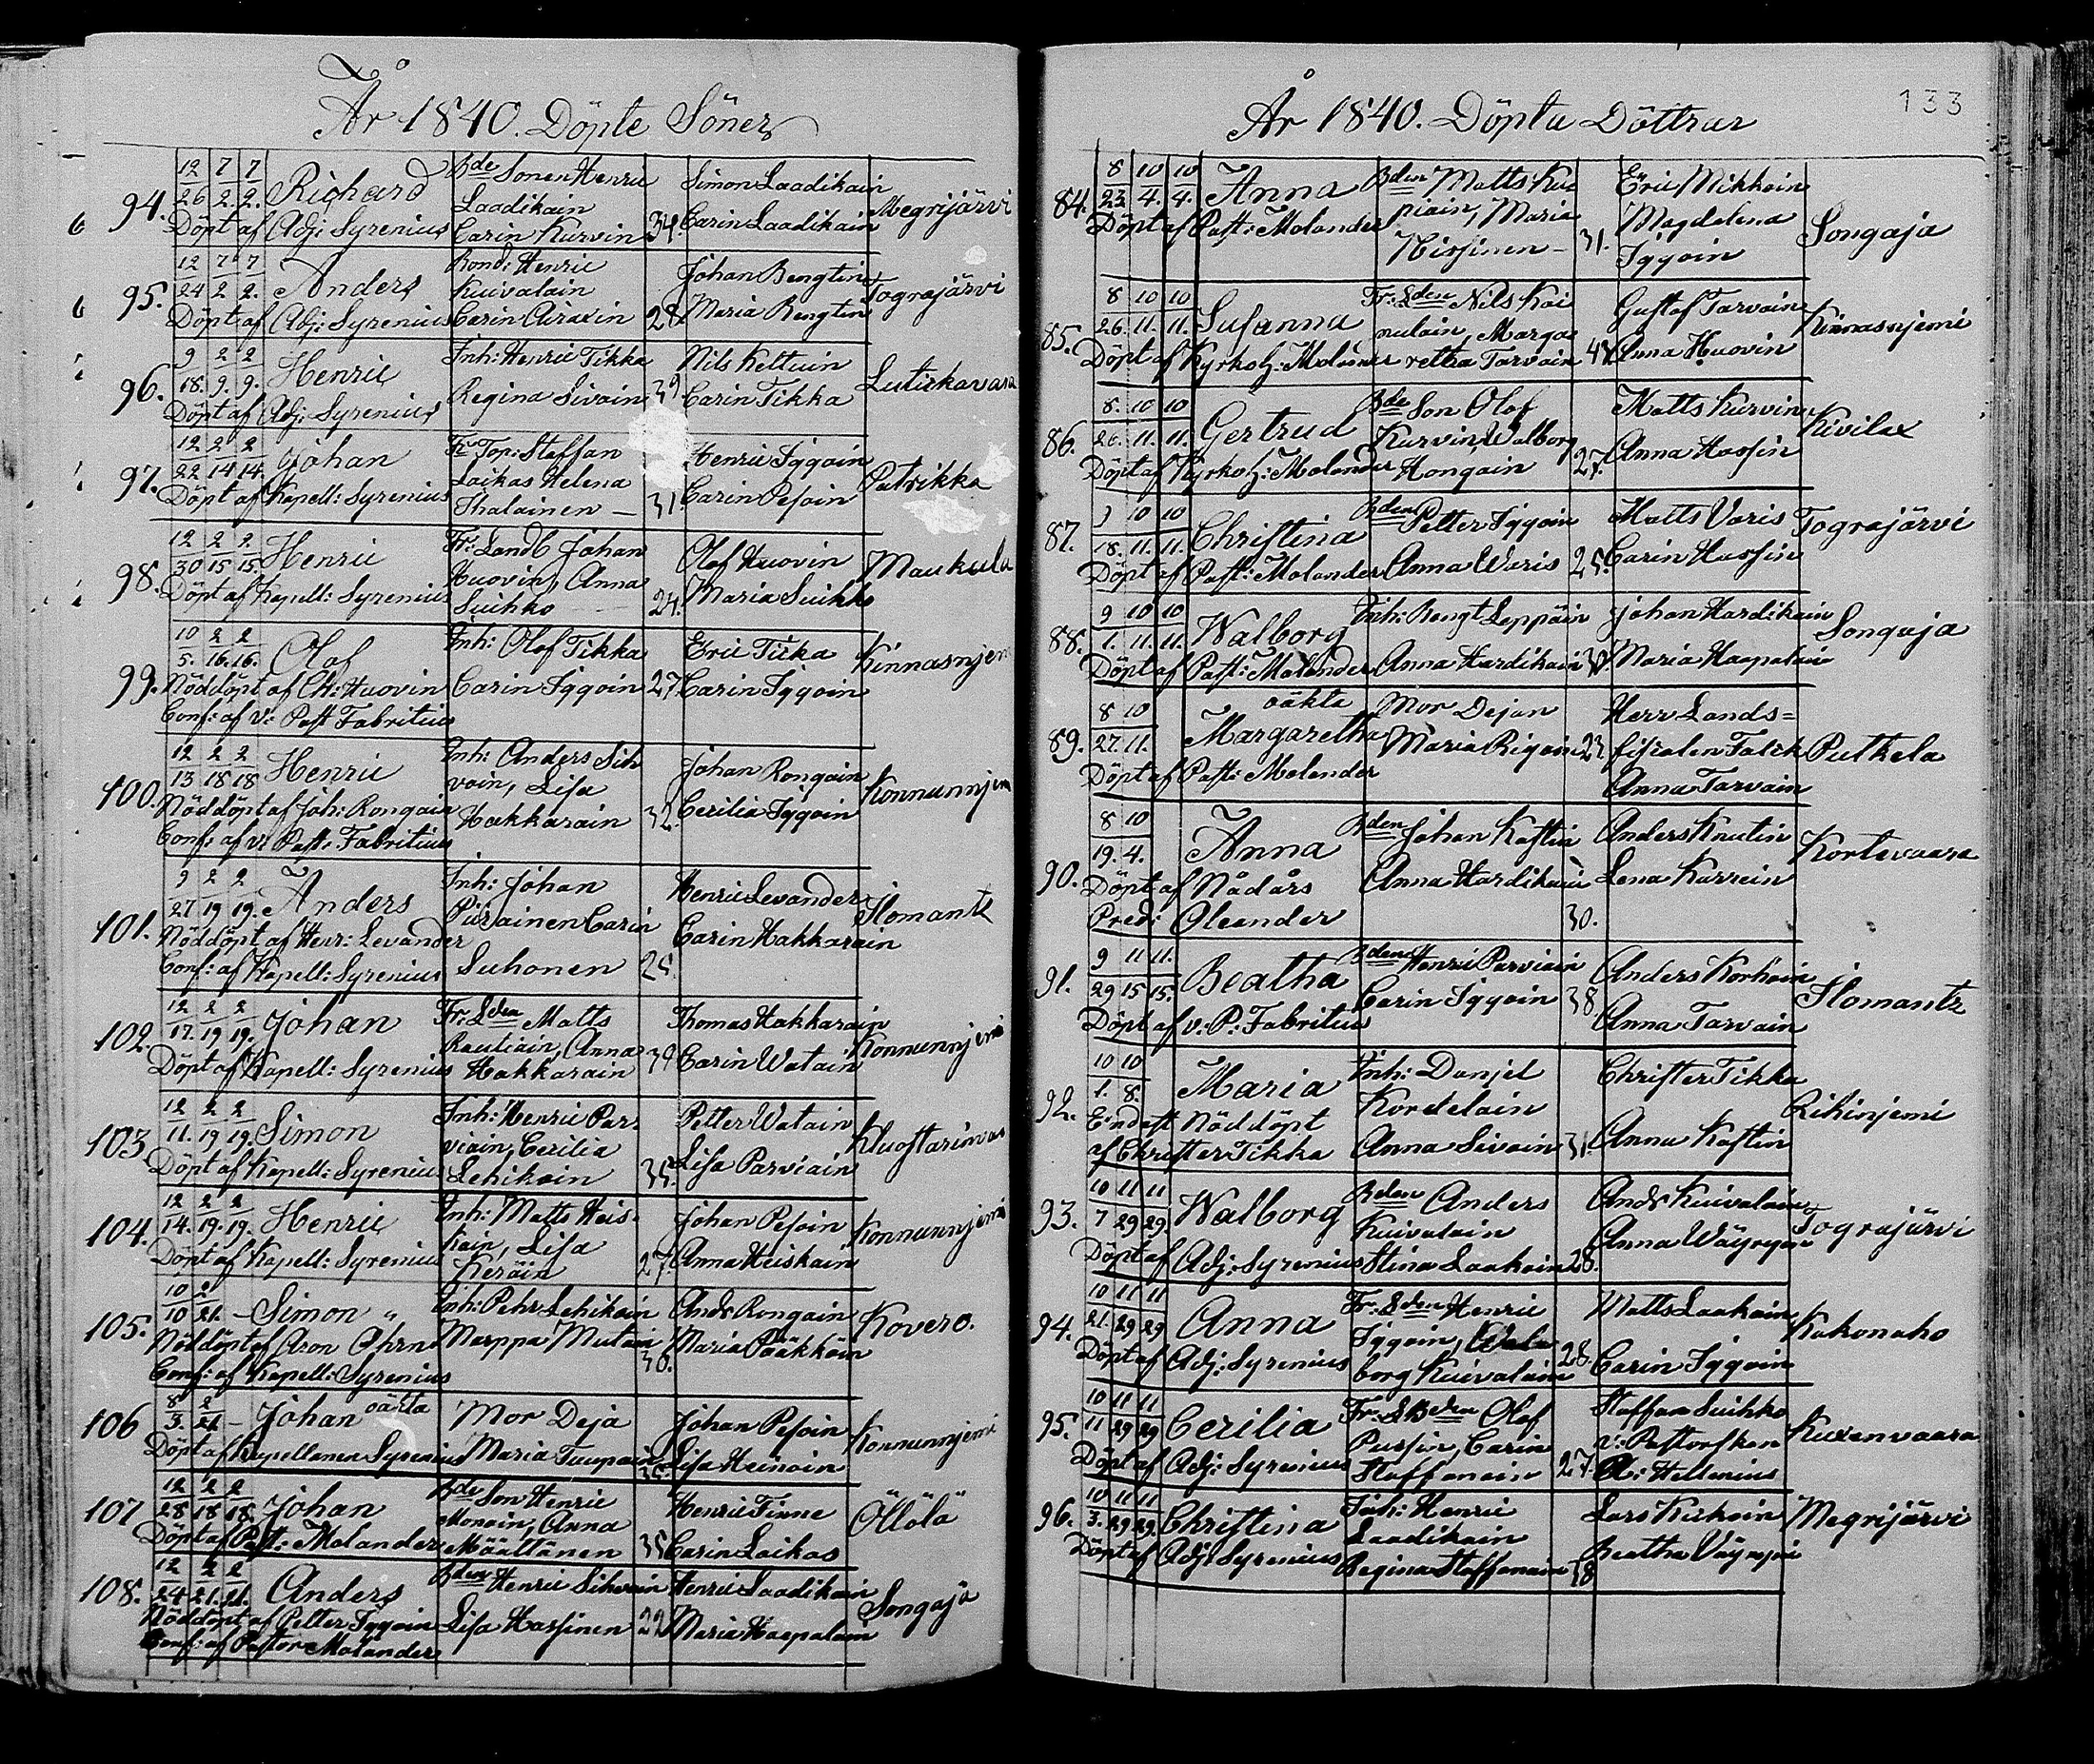 År 1840. Döpte Söner
94.
12 7 7
26 2. 2.
Richard
Döpt af Adj: Syrenius
Bde Sonen Henric
Laadikain
Carin Kurvin
34.
Simon Laadikain
Carin Laadikain
Megrijärvi
95.
12 7 7
24 2 2.
Anders
Döpt af Adj: Syrenius
Bond: Henric
Kuivalain
Carin
28
Johan Bengtin
Maria Bengtin
Tograjärvi
96.
9 2 2
18. 9. 9.
Henric
Döpt af Adj: Syrenius
Inh: Henric Tikka
Regina Sivoin
39
Nils Keltuin
Carin Tikka
Lutickavara
97.
12 2 2
22 14 14.
Johan
Döpt af Kapell: Syrenius
Top: Staffan
Laikas Helena
Ihalainen —
31.
Henric Iggoin
Carin Pesoin
Patrikka
98.
12 2 2
30 15 15.
Henric
Döpt af Kapell: Syrenius
Fr: Landb Johan
Huovin, Anna
Suihko
24.
Olof Huovin
Maria Suihko
Maukula
99.
10 2 2
5. 16. 16.
Olof
Nöddöpt af Ch: Huovin
Conf: af v: Past Fabritius
Inh: Olof Tikka
Carin Iggoin
27
Eric Ticka
Carin Iggoin
Kinnasnjem
100.
12 2 2
13 18 18
Henric
Nöddöpt af Joh: Rongain
Conf: af v: Past: Fabritius
Inh: Anders Sih
voin, Lisa
Hakkarain
32.
Johan Rongain
Cecilia Iggoin
Konnunnjem
101.
9 2 2
27 19 19.
Anders
Nöddöpt af Henr: Levander
Conf: af Kapell: Syrenius
Inh: Johan
Piirainen Carin
Suhonen
25.
Henric Levander
Carin Hakkarain
Ilomants
102.
12 2 2
17. 19 19.
Johan
Döpt af Kapell: Syrenius
Fr: Lden Matts
Rautiain, Anna
Hakkarain
39
Thomas Hakkarain
Carin Watain
Konnunnjemi
103
12 2 2
11. 19 19.
Simon
Döpt af Kapell: Syrenius
Inh: Henric Par-
viain, Cecilia
Lehikoin
35.
Petter Watain
Lisa Parviain
Kluostarinvas
104.
12 2 2
14. 19. 19.
Henric
Döpt af Kapell: Syrenius
Inh: Matts Heis-
kain, Lisa
Keräin
27.
Johan Pesoin
Anna Heiskain
Konnunnjemi
105.
10 2
10 21.
— Simon "
Nöddöpt af Aron Öhrn
Conf: af Kapell: Syrenius
Inh: Pehr Lehikoin
Marppa Mutan
30.
Ands Rongain
Maria Pääkköin
Kovero.
106
8 2
3. 21 —
Johan oäkta
Döpt af Kapellanen Syrenius
Mor Deja
Maria Turpain
Johan Pesoin
Lisa Heinoin
Konnunnjemi
107
12 2 2
28 18 18.
Johan
Döpt af Past: Molander
Bde Son Henric
Monoin, Anna
Määttänen
35
Henric Finne
Carin Laikas
Öllölä
108.
12 2 2
24 21. 21.
Anders
Nöddöpt af Petter Iggoin
Conf: af Pastor Molander
Bden Henric Sihvoin
Lisa Hassinen
22
Henric Laadikain
Maria Haapalain
Songaja
133
År 1840. Döpta Döttrar
84.
8 10 10
23. 4. 4.
Anna
Döpt af Past: Molander
Bden Matts Ku-
piain, Maria
Nissinen —
31.
Eric Mikkoin
Magdalena
Iggoin
Songaja
85.
8 10 10
26. 11. 11.
Susanna
Döpt af Kyrkoh: Molander
Fr: Lden Nils Kai
nulain, Marga-
retha Tarvain
Gustaf Tarvain
Anna Huovin
Kinnasnjemi
86.
8. 10 10
26. 11. 11.
Gertrud
Döpt af Kyrkoh: Molander
Bde Son Olof
Kurvin, Walborg
Hongain
27.
Matts Kurvin
Anna Hassin
Kivilax
87.
10 10
18. 11. 11.
Christina
Döpt af Past: Molander
Bden Petter Iggoin
Anna Waris
25.
Matts Varis
Carin Hassin
Tograjärvi
88.
9 10 10
1. 11. 11.
Walborg
Döpt af Past: Molander
Inh: Bengt Leppäin
Anna Hardikain
Johan Hardikain
Maria Haapalain
Songaja
89.
8 10
27. 11.
oäkta
Margaretha
Döpt af Past: Molander
Mor Dejan
Maria Rigoin
23.
Herr Lands=
fiscalen Falck
Anna Tarvain
Putkela
90.
8 10
19. 4.
Anna
Döpt af Nådårs
Pred: Oleander
Bden Johan Kastin
Anna Hardikain
30.
Anders Knutin
Lena Karrein
Kortevaara
91.
9 11 11.
29 15 15.
Beatha
Döpt af v: P: Fabritius
Bden Henric Parviain
Carin Iggoin
38.
Anders Korhoin
Anna Tarvain
Ilomantz
92.
10 10
1. 8.
Maria
Endast Nöddöpt
af Christer Tikka
Inh: Danjel
Kordelain
Anna Sivoin
31.
Christer Tikka
Anna Kastin
Rihinjemi
93.
10 11 11
7 29 29
Walborg
Döpt af Adj: Syrenius
Bden Anders
Kuivalain
Stina Laakoin
28.
Ands Kuivalain
Anna Wäyrynen
Tograjärvi
94.
10 11 11
21. 29 29
Anna
Döpt af Adj: Syrenius
Fr: Lden Henric
Iggoin, Wal-
borg Kuivalain
28.
Matts Laakoin
Carin Iggoin
Kakonaho
95.
10 11 11
11 29 29
Cecilia
Döpt af Adj: Syrenius
Fr: LBden Olof
Pussin, Carin
Staffanain
27.
Staffan Suihko
v: Pastorskan
Hellenius
Kuxenvaara
96.
10 11 11
3. 29 29.
Christina
Döpt af Adj: Syrenius
Inh: Henric
Laadikain
Regina Staffanain
Lars Kickoin
Beatha Väyrynen
Megrijärvi